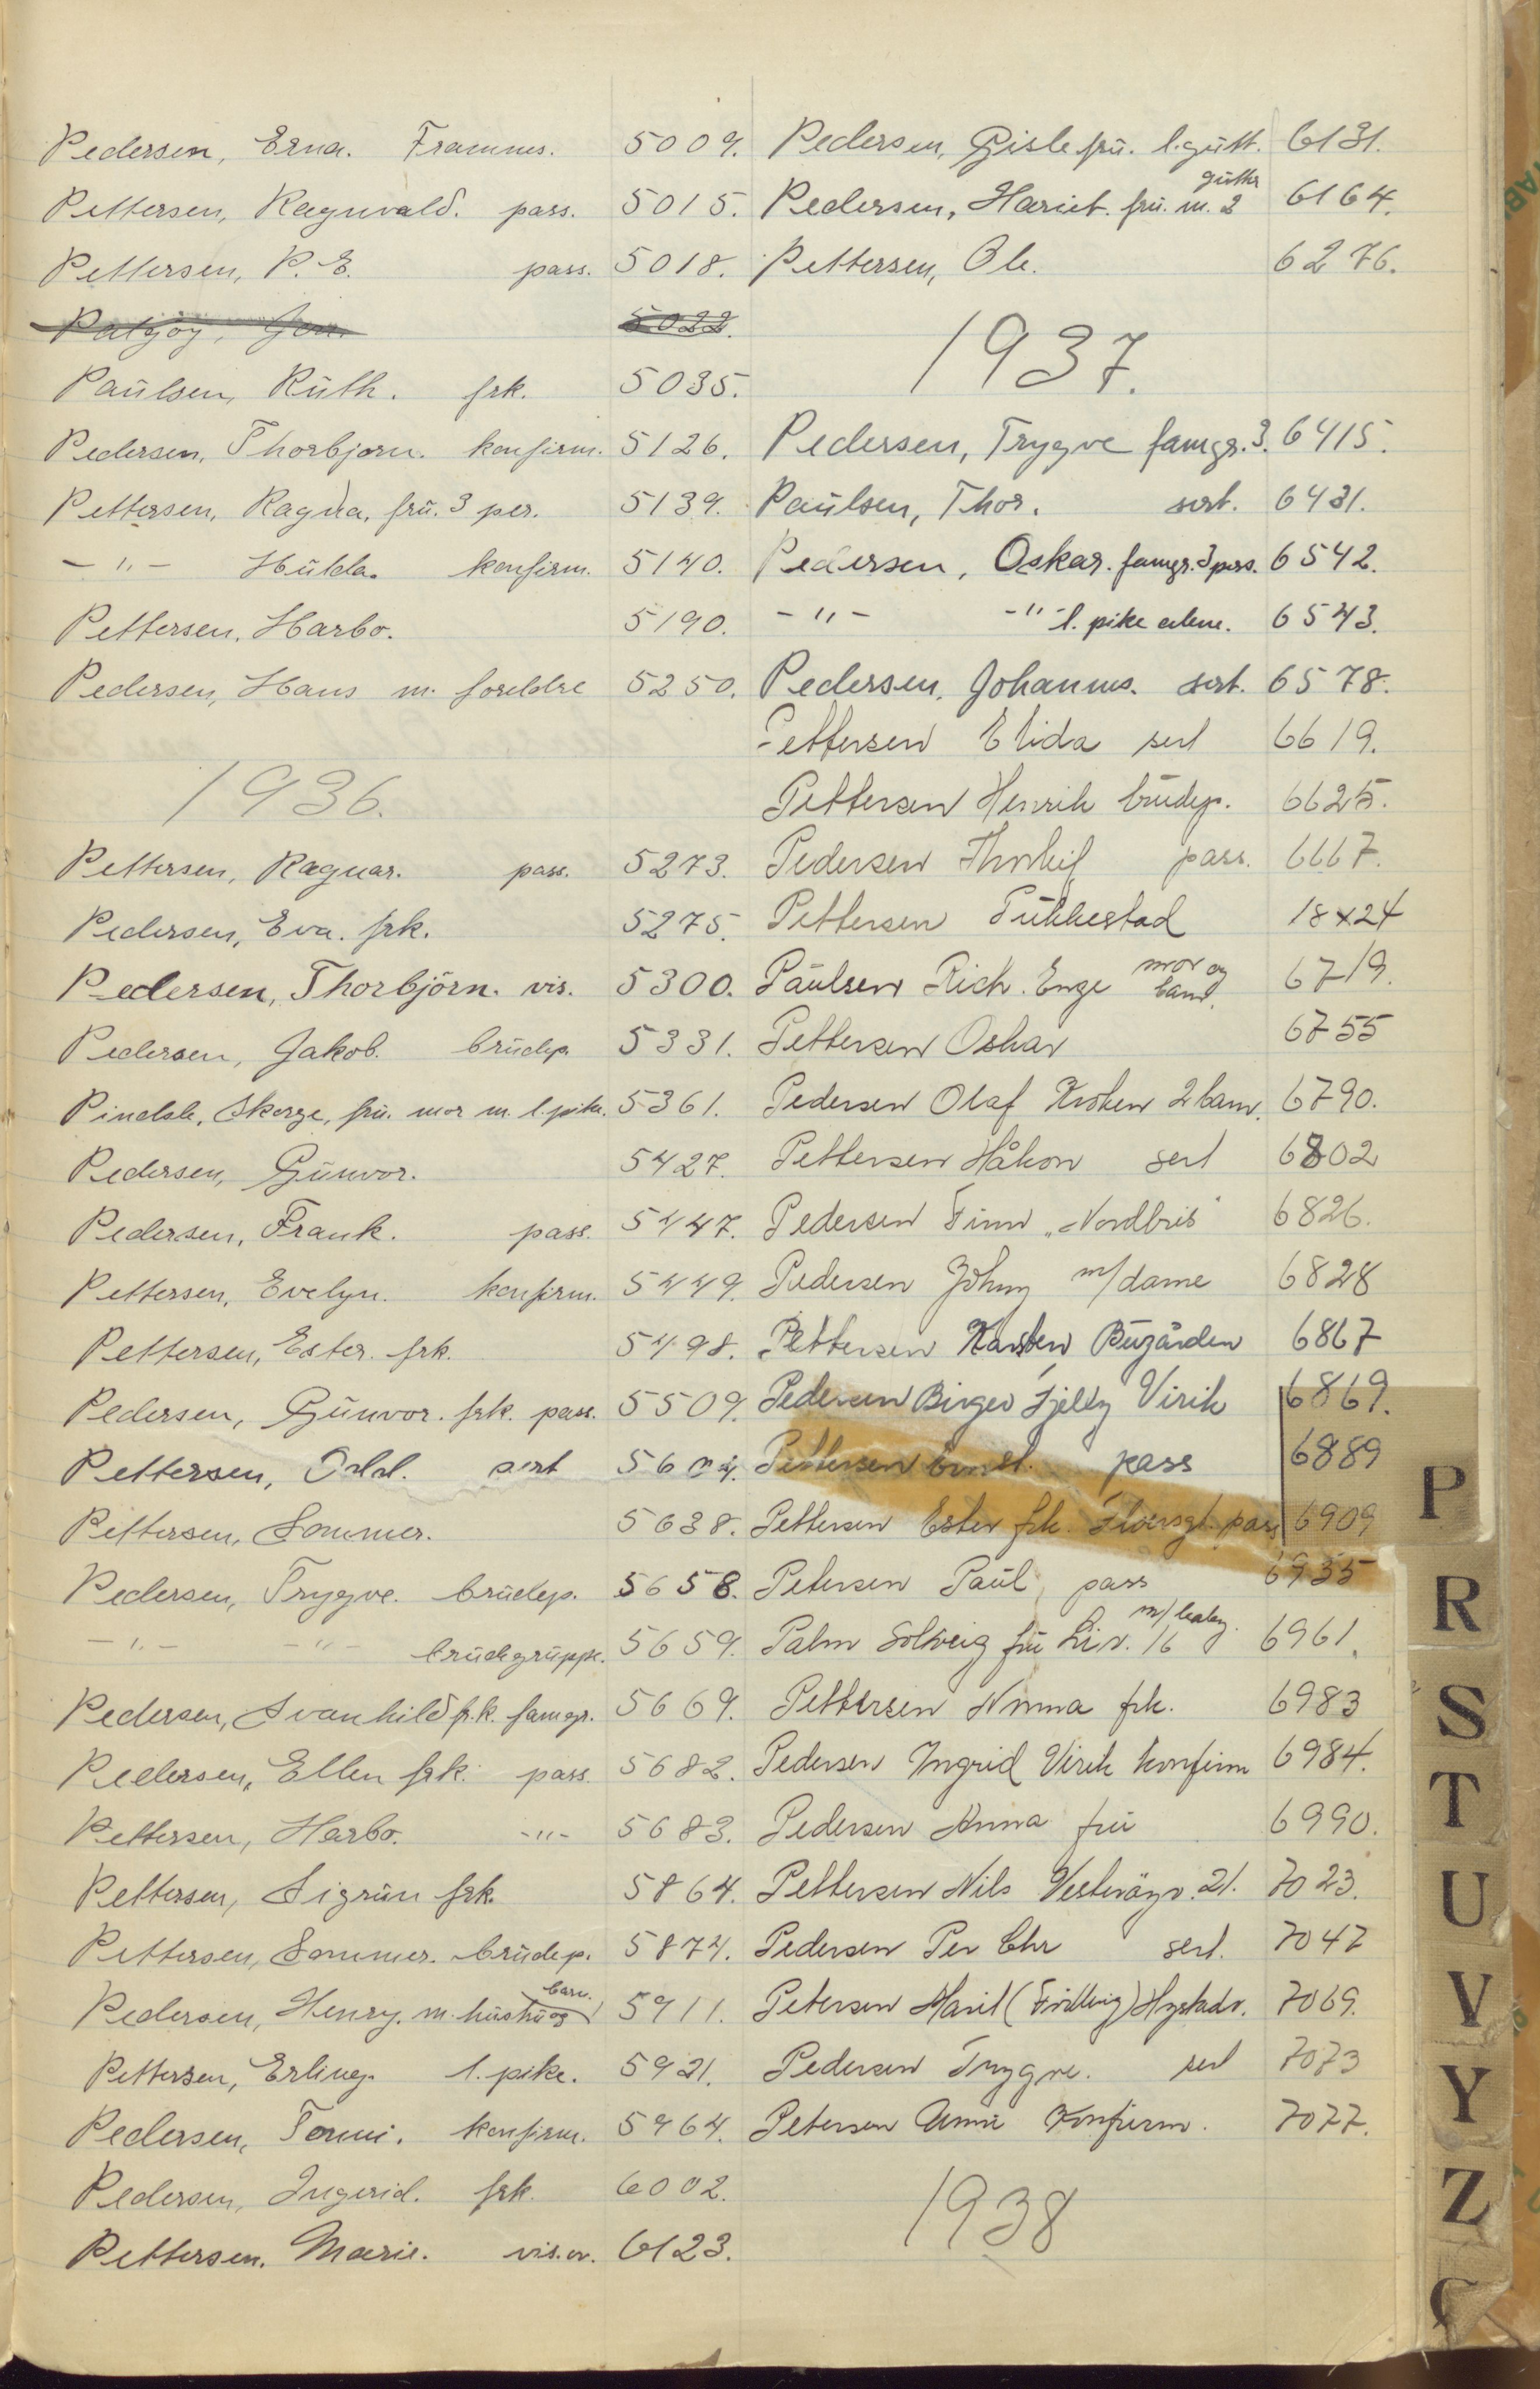 Pedersen, Erna. Framnes. 5009.
Pettersen, Ragnvald. pass. 5015.
Pettersen, P. E. pass. 5018.
5022.
Paülsen, Rüth. frk. 5035.
Pedersen, Thorbjørn. konfirm. 5126.
Pettersen, Ragna, frü. 3 per. 5139.
- " - Hülda. konfirm. 5140.
Pettersen, Harbo. 5190.
Pedersen, Hans m. foreldre 5250.
1936.
Pettersen, Ragnar. pass. 5273.
Pedersen, Eva. frk. 5275.
Pedersen, Thorbjörn. vis. 5300.
Pedersen, Jakob. brüdep. 5331.
Pindsle, frü. mor m. l. pike. 5361.
Pedersen, Günvor. 5427.
Pedersen, Frank. pass. 5447.
Pettersen, Evelyn. konfirm. 5449.
Pettersen, Ester. frk. 5498.
Pedersen, Günvor. frk. pass. 5509.
Pettersen, Odd. sert 5604.
Pettersen, Sommer. 5638.
Pedersen, Trygve. brüdep. 5658.
- " - - " - brüdegrüppe. 5659.
Pedersen, Svanhild frk. famgr. 5669.
Pedersen, Ellen frk. pass. 5682.
Pettersen, Harbo. - " - 5683.
Pettersen, Sigrün frk. 5864.
Pettersen, Sommer. brüdep. 5874.
Pedersen, Henry. m. hüstrü og barn. 5911.
Pettersen, Erling. l. pike. 5921.
Pedersen, Tonni. konfirm. 5964.
Pedersen, Ingerid. frk. 6002.
Pettersen, Marie. vis. 6123.
Pedersen, Gisle frü. l. gütt. 6131.
Pedersen, Hariet. frü. m. 2 gütter 6164.
Pettersen, Ole. 6276.
1937.
Pedersen, Trygve famgr. 3. 6415.
Paülsen, Thor. sert. 6431.
Pedersen, Oskar. famgr. 3 pers. 6542.
- " - - " - l. pike alene. 6543.
Pedersen, Johannes. sert. 6578.
Pettersen Elida sert 6619.
Pettersen Henrik brüdep. 6625.
Pedersen Thorleif pass. 6667.
Pettersen 18x24
Paülsen Rich. Enge mor og barn. 6719.
Pettersen Oskar 6755
Pedersen Olaf Kroken 2 barn. 6790.
Pettersen Håkon sert 6802
Pedersen Finn „Nordbris" 6826.
Pedersen Johny m/dame 6828
Pettersen Karsten Bügården 6867
Pedersen Birger Fjelly Virik 6869.
Pettersen Ernst. pass 6889
Pettersen Ester frk. pass 6909
Petersen Paül pass 6935
Palm Solveig frü 16 m/baby. 6961.
Pettersen Nmna frk. 6983
Pedersen Ingrid Virik konfirm 6984.
Pedersen Anna frü 6990.
Pettersen Nils 21. 7023.
Pedersen Per Chr sert. 7047
Petersen Marit 7069.
Pedersen Trygve. sert 7073
Petersen Konfirm. 7077.
1938
P
R
S
T
U
V
Y
Z